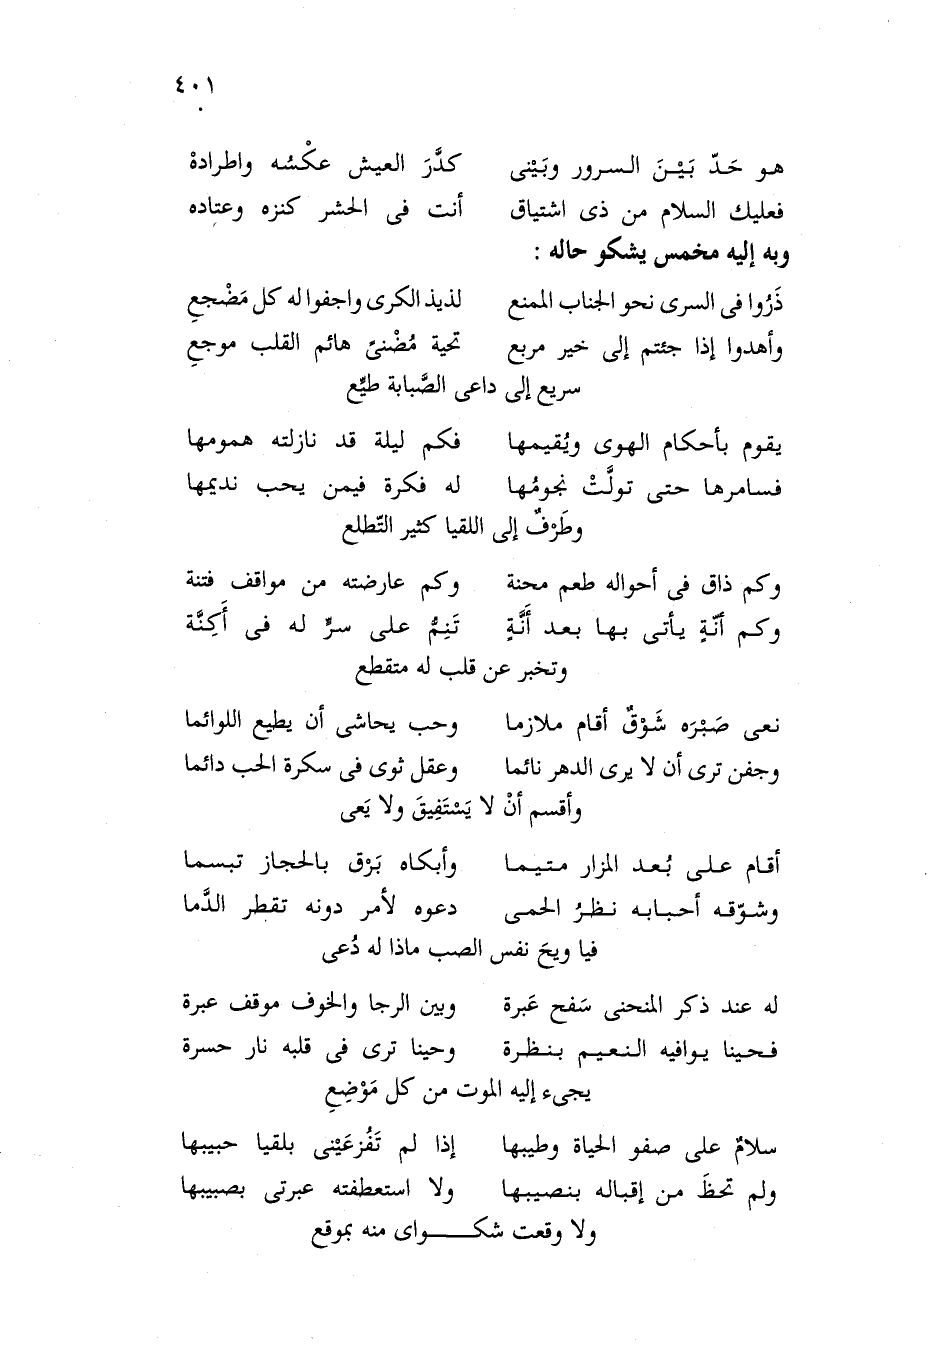 ٤٠١
هو حَدّ بَيْنَ السرور وبَيْنى كدَّرَ العيش عكْسُه واطرادهْ
فعليك السلام من ذى اشتياق أنت فى الحشر كنزه وعتاده
وبه إليه مخمس يشكو حاله :
ذَرُوا فى السرى نحو الجناب الممنع لذيذ الكرى واجفوا له كل مَضْجعِ
وأهدوا إذا جئتم إلى خير مربع تحية مُضْنىً هائم القلب موجعِ
سريع إلى داعى الصَّبابة طيِّع
يقوم بأحكام الهوى ويُقيمها فكم ليلة قد نازلته همومها
فسامرها حتى تولَّتْ نجومُها له فكرة فيمن يحب نديمها
وطَرْفٌ إلى اللقيا كثير التّطلع
وكم ذاق فى أحواله طعم محنة وكم عارضته من مواقف فتنة
وكم أنّةٍ يأتى بها بعد أَنَّةٍ تَنِمُّ على سرٍّ له فى أَكِنَّة
وتخبر عن قلب له متقطع
نعى صَبْرَه شَوْقٌ أقام ملازما وحب يحاشى أن يطيع اللوائما
وجفن ترى أن لا يرى الدهر نائما وعقل ثوى فى سكرة الحب دائما
وأقسم أنْ لا يَسْتَفِيقَ ولا يَعى
أقام على بُعد المزار متيما وأبكاه بَرْق بالحجاز تبسما
وشوّقه أحبابه نظرُ الحمى دعوه لأمر دونه تقطر الدَّما
فيا ويحَ نفس الصب ماذا له دُعى
له عند ذكر المنحنى سَفح عَبرة وبين الرجا والخوف موقف عبرة
فحينا يوافيه النعيم بنظرة وحينا ترى فى قلبه نار حسرة
يجىء إليه الموت من كل مَوْضِعِ
سلامٌ على صفو الحياة وطيبها إذا لم تَفُزعَيْنى بلقيا حبيبها
ولم تحظَ من إقباله بنصيبها ولا استعطفته عبرتى بصبيبها
ولا وقعت شكـــواى منه بموقع